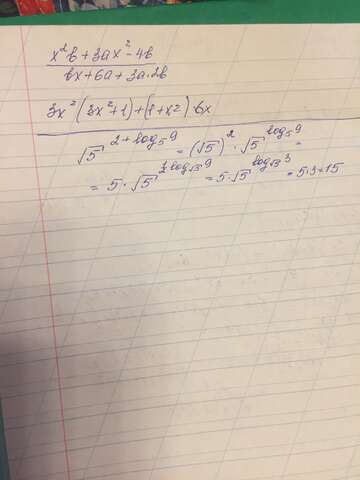 x²b + 3ax² - 4b
bx + 6a + 3a · 2b
3x² (3x² + 1) + (1 + x²) · 6x
√5^(2 + log₅9) = (√5)² · √5^(log₅9) =
= 5 · √5^(½ log_√5 9) = 5 · √5^(log_√5 3) = 5·3=15